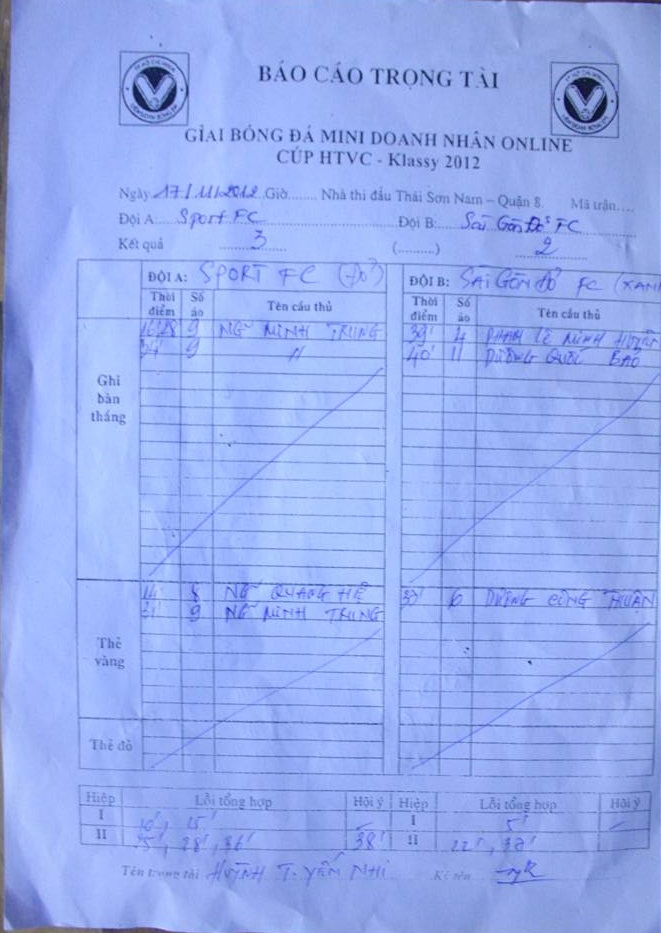 BÁO CÁO TRỌNG TÀI
GIẢI BÓNG ĐÁ MINI DOANH NHÂN ONLINE
CÚP HTVC - Klassy 2012
Ngày 17/11/2012 Giờ........ Nhà thi đấu Thái Sơn Nam – Quận 8. Mã trận....
Đội A.... Sport FC Đội B:.... Sài Gòn Đỏ FC
Kết quả 3 (.........) 2
ĐỘI A: SPORT FC (Đỏ) ĐỘI B: SÀI GÒN ĐỎ FC (XANH
Thời điểm Số áo Tên cầu thủ Thời điểm Số áo Tên cầu thủ
Ghi bàn thắng
9 NG~ MINH TRUNG 39' 4 PHAN LÊ MINH
9 " 40' 11 DƯƠNG QUỐC BẢO
Thẻ vàng
14' 8 NG~ QUANG HỂ 6 DƯƠNG CÔNG THUẬN
31' 9 NG~ MINH TRUNG
Thẻ đỏ
Hiệp Lỗi tổng hợp Hội ý Hiệp Lỗi tổng hợp Hội ý
I 10', 15' – I 5' –
II 25', 28', 36' 38' II 22', 38'
Tên trọng tài HUỲNH T. YẾN NHI Ký tên